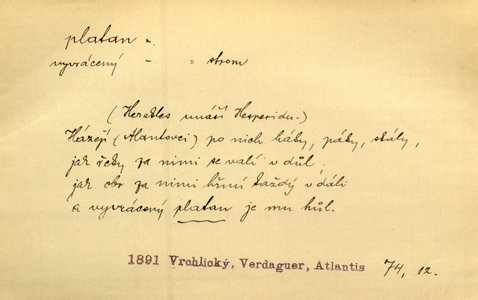 platan m.
vyvrácený - = strom
(Herakles unáší Hesperidu.)
Házejí (Atlantovci) po nich háby, páky, skály,
jak řeky za nimi se valí v důl,
jak obr za nimi hřmí každý v dáli
a vyvrácený platan je mu hůl.
1891 Vrchlický, Verdaguer, Atlantis 74, 12.